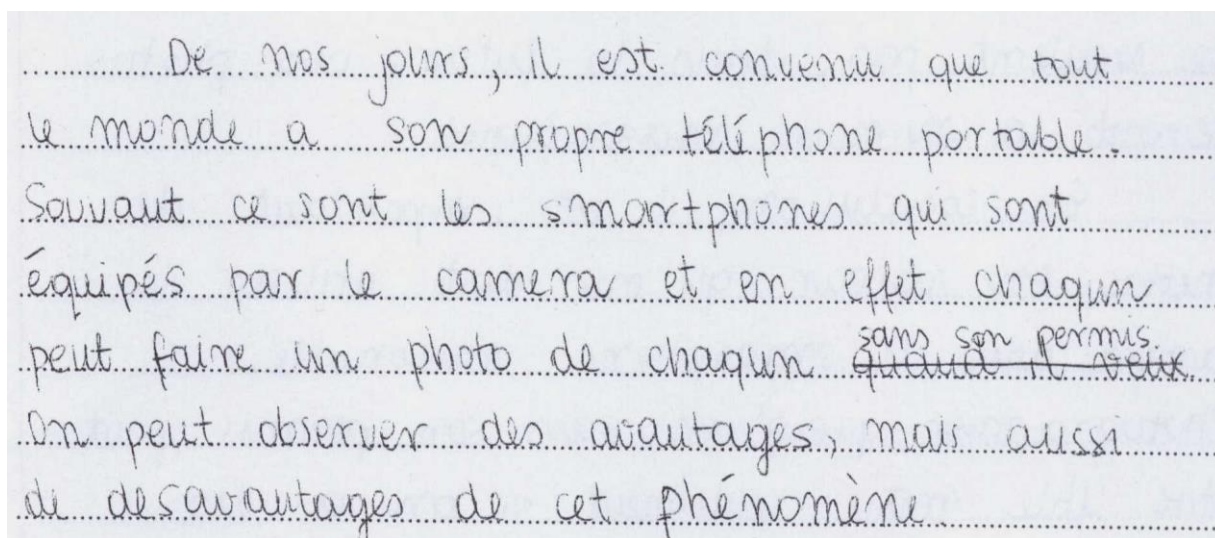 De nos jours, il est convenu que tout
le monde a son propre téléphone portable.
Souvant ce sont les smartphones qui sont
équipés par le camera et en effet chaqun
peut faire un photo de chaqun sans son permis.
On peut observer des avantages, mais aussi
de desavantages de cet phénomène.